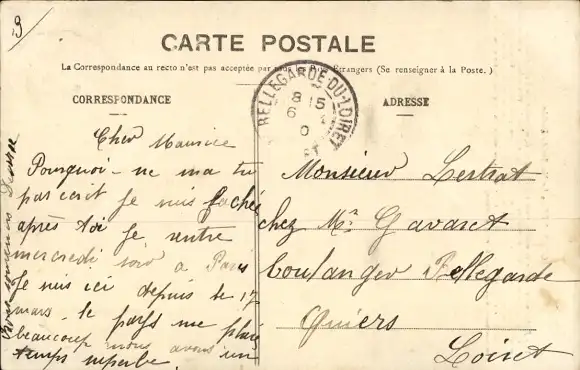 B
CARTE POSTALE
La Correspondance au recto n'est pas acceptée par tous les Pays Etrangers (Se renseigner à la Poste.)
CORRESPONDANCE
ADRESSE
BELLEGARDE-DU-LOIRET
8 15
6
Cher Maurice
Pourquoi ne ma tu
pas ecrit Je suis fachée
après toi Je rentre
mercredi soir a Paris
Je suis ici depuis le 17
mars. le pays me plais
beaucoup nous avons un
temps superbe
Monsieur Lertrat
chez Mr Gavaret
boulanger Bellegarde
Quiers
Loiret